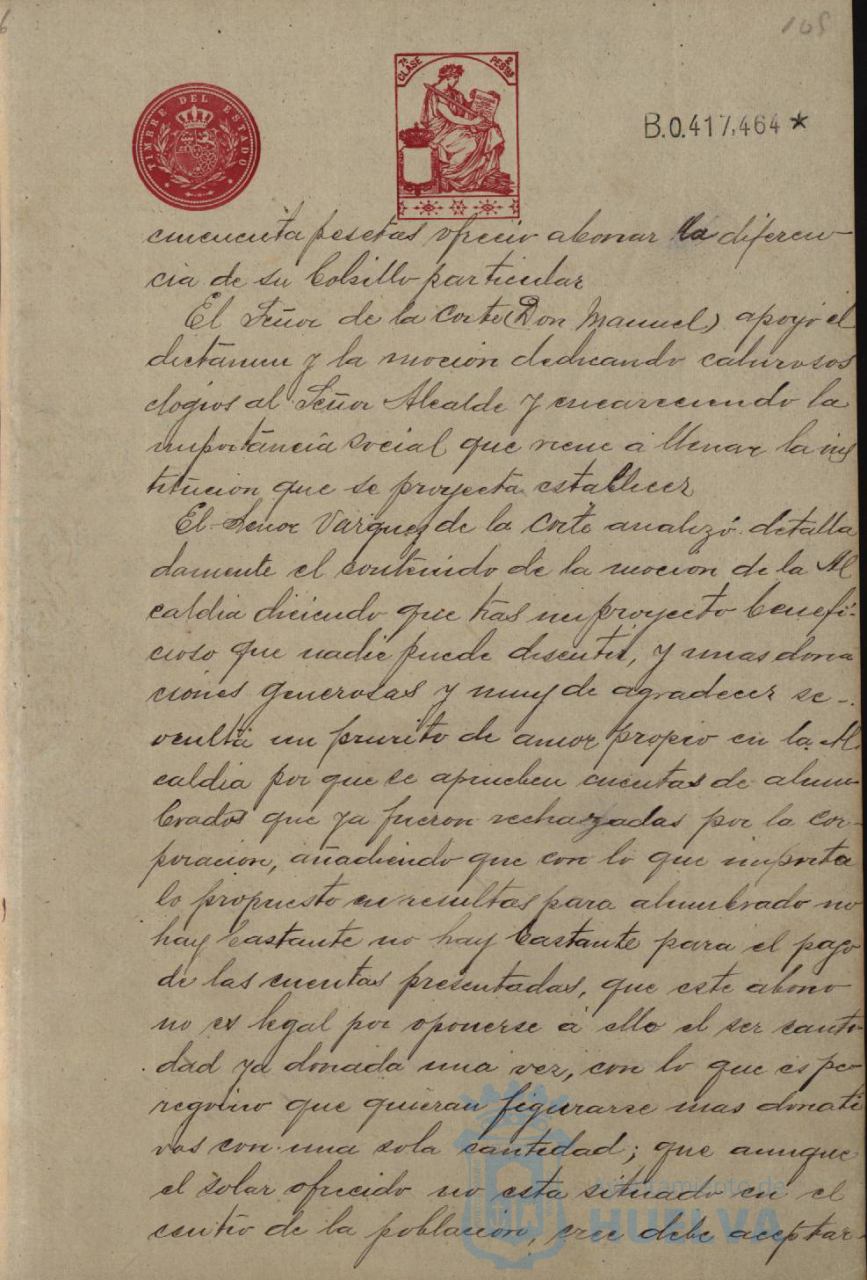 105
TIMBRE DEL ESTADO
7ª CLASE 2 PESTAS
B.0.417,464 *
cincuenta pesetas ofrecio abonar la diferen-
cia de su bolsillo particular
El Señor de la Corte (Don Manuel) apoyó el
dictámen y la moción dedicando calurosos
elogios al Señor Alcalde y encareciendo la
importáncia social que viene a llenar la ins
titucion que se proyecta establecer
El Señor Vazquez de la Corte analizó detalla
damente el contenido de la mocion de la Al
caldia diciendo que tras un proyecto benefi-
cioso que nadie puede discutir, y unas dona
ciones generosas y muy de agradecer se-
oculta un prurito de amor propio en la Al
caldia por que se aprueben cuentas de alum-
brados que ya fueron rechazadas por la cor-
poracion, añadiendo que con lo que importa
lo propuesto en resultas para alumbrado no
hay bastante no hay bastante para el pago
de las cuentas presentadas, que este abono
no es legal por oponerse á ello el ser canti-
dad ya donada una vez, con lo que es pe
regrino que quieran figurarse mas donati
vos con una sola cantidad; que aunque
el solar ofrecido no esta situado en el
centro de la poblacion, cree debe aceptar-
Ayuntamiento de
HUELVA